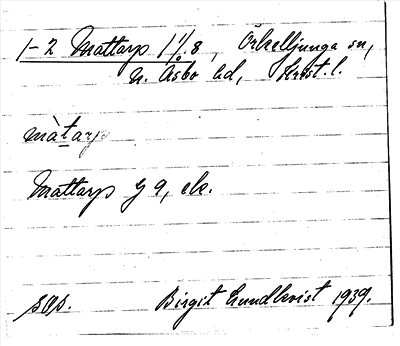 1-2 Mattarp 1⅟₁8, Örkelljunga sn,
n. Åsbo hd, Krist. l.
màtarp
Mattarp G 9, ek.
sOp. Birgit Lundkvist 1939.